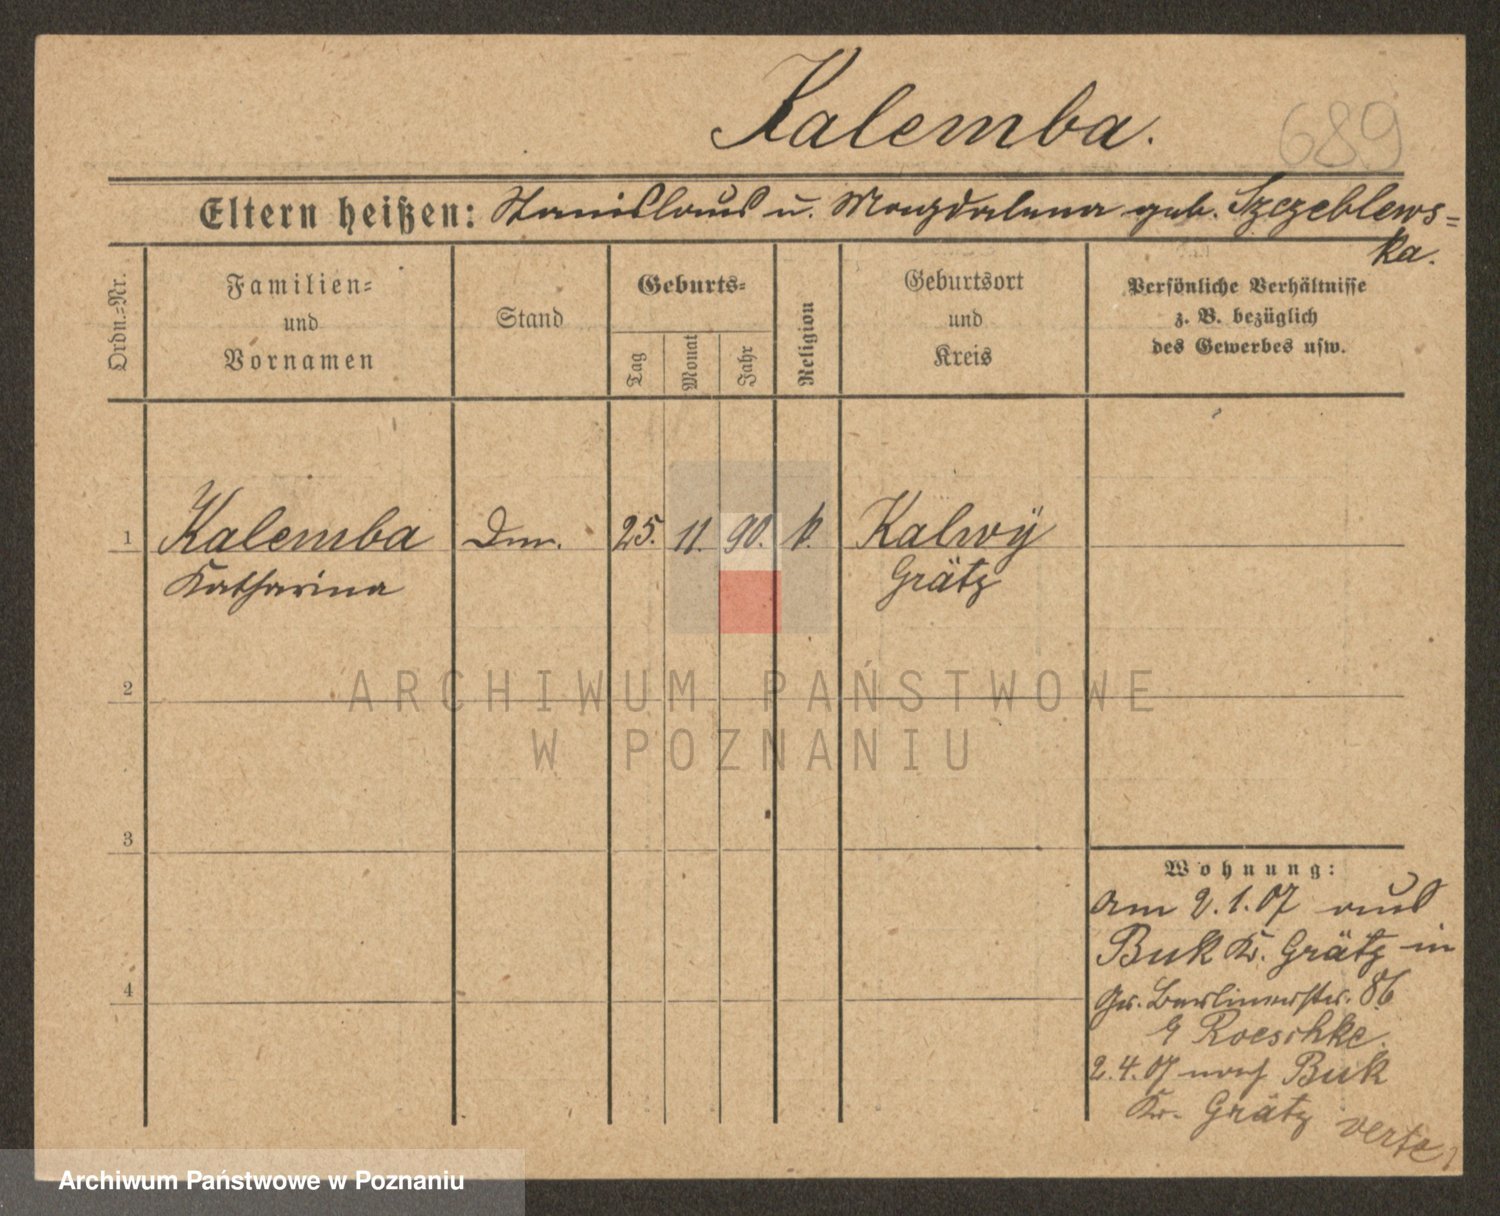 Kalemba.
689
Eltern heißen: Stanislaus u. Magdalena geb. Szczeblews=
ka.
Ordn.=Nr.
Familien=
und
Vornamen
Stand
Geburts=
Tag
Monat
Jahr
Religion
Geburtsort
und
Kreis
Persönliche Verhältnisse
z. B. bezüglich
des Gewerbes usw.
1 Kalemba 25. 11. 90. k. Kalwÿ
Katharina Grätz
2
ARCHIWUM PAŃSTWOWE
W POZNANIU
3
4
Wohnung:
Am 2.1.07 aus
Buk Kr. Grätz in
Gr. Berlinerstr. 86
Roeschke.
2.4.07 nach Buk
Kr. Grätz verte
Archiwum Państwowe w Poznaniu